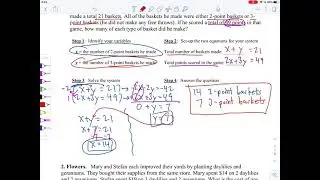 made a total 21 baskets. All of the baskets he made were either 2-point baskets or 3-
point baskets (he did not make any free throws). If he scored a total of 49 points in that
game, how many of each type of basket did he make?
Step 1: Identify your variables
Step 2: Set up the two equations for your system
x = the number of 2-point baskets he made
Total number of baskets made: x + y = 21
y = the number of 3-point baskets he made
Total points scored in the game: 2x + 3y = 49
Step 3: Solve the system
Step 4: Answer the question
x + y = 21
2x + 3y = 49
0 + y = 7
y = 7
14 2-point baskets
7 3-point baskets
x + y = 21
x + 7 = 21
x = 14
2. Flowers. Mary and Stefan each improved their yards by planting daylilies and
geraniums. They bought their supplies from the same store. Mary spent $14 on 2 daylilies